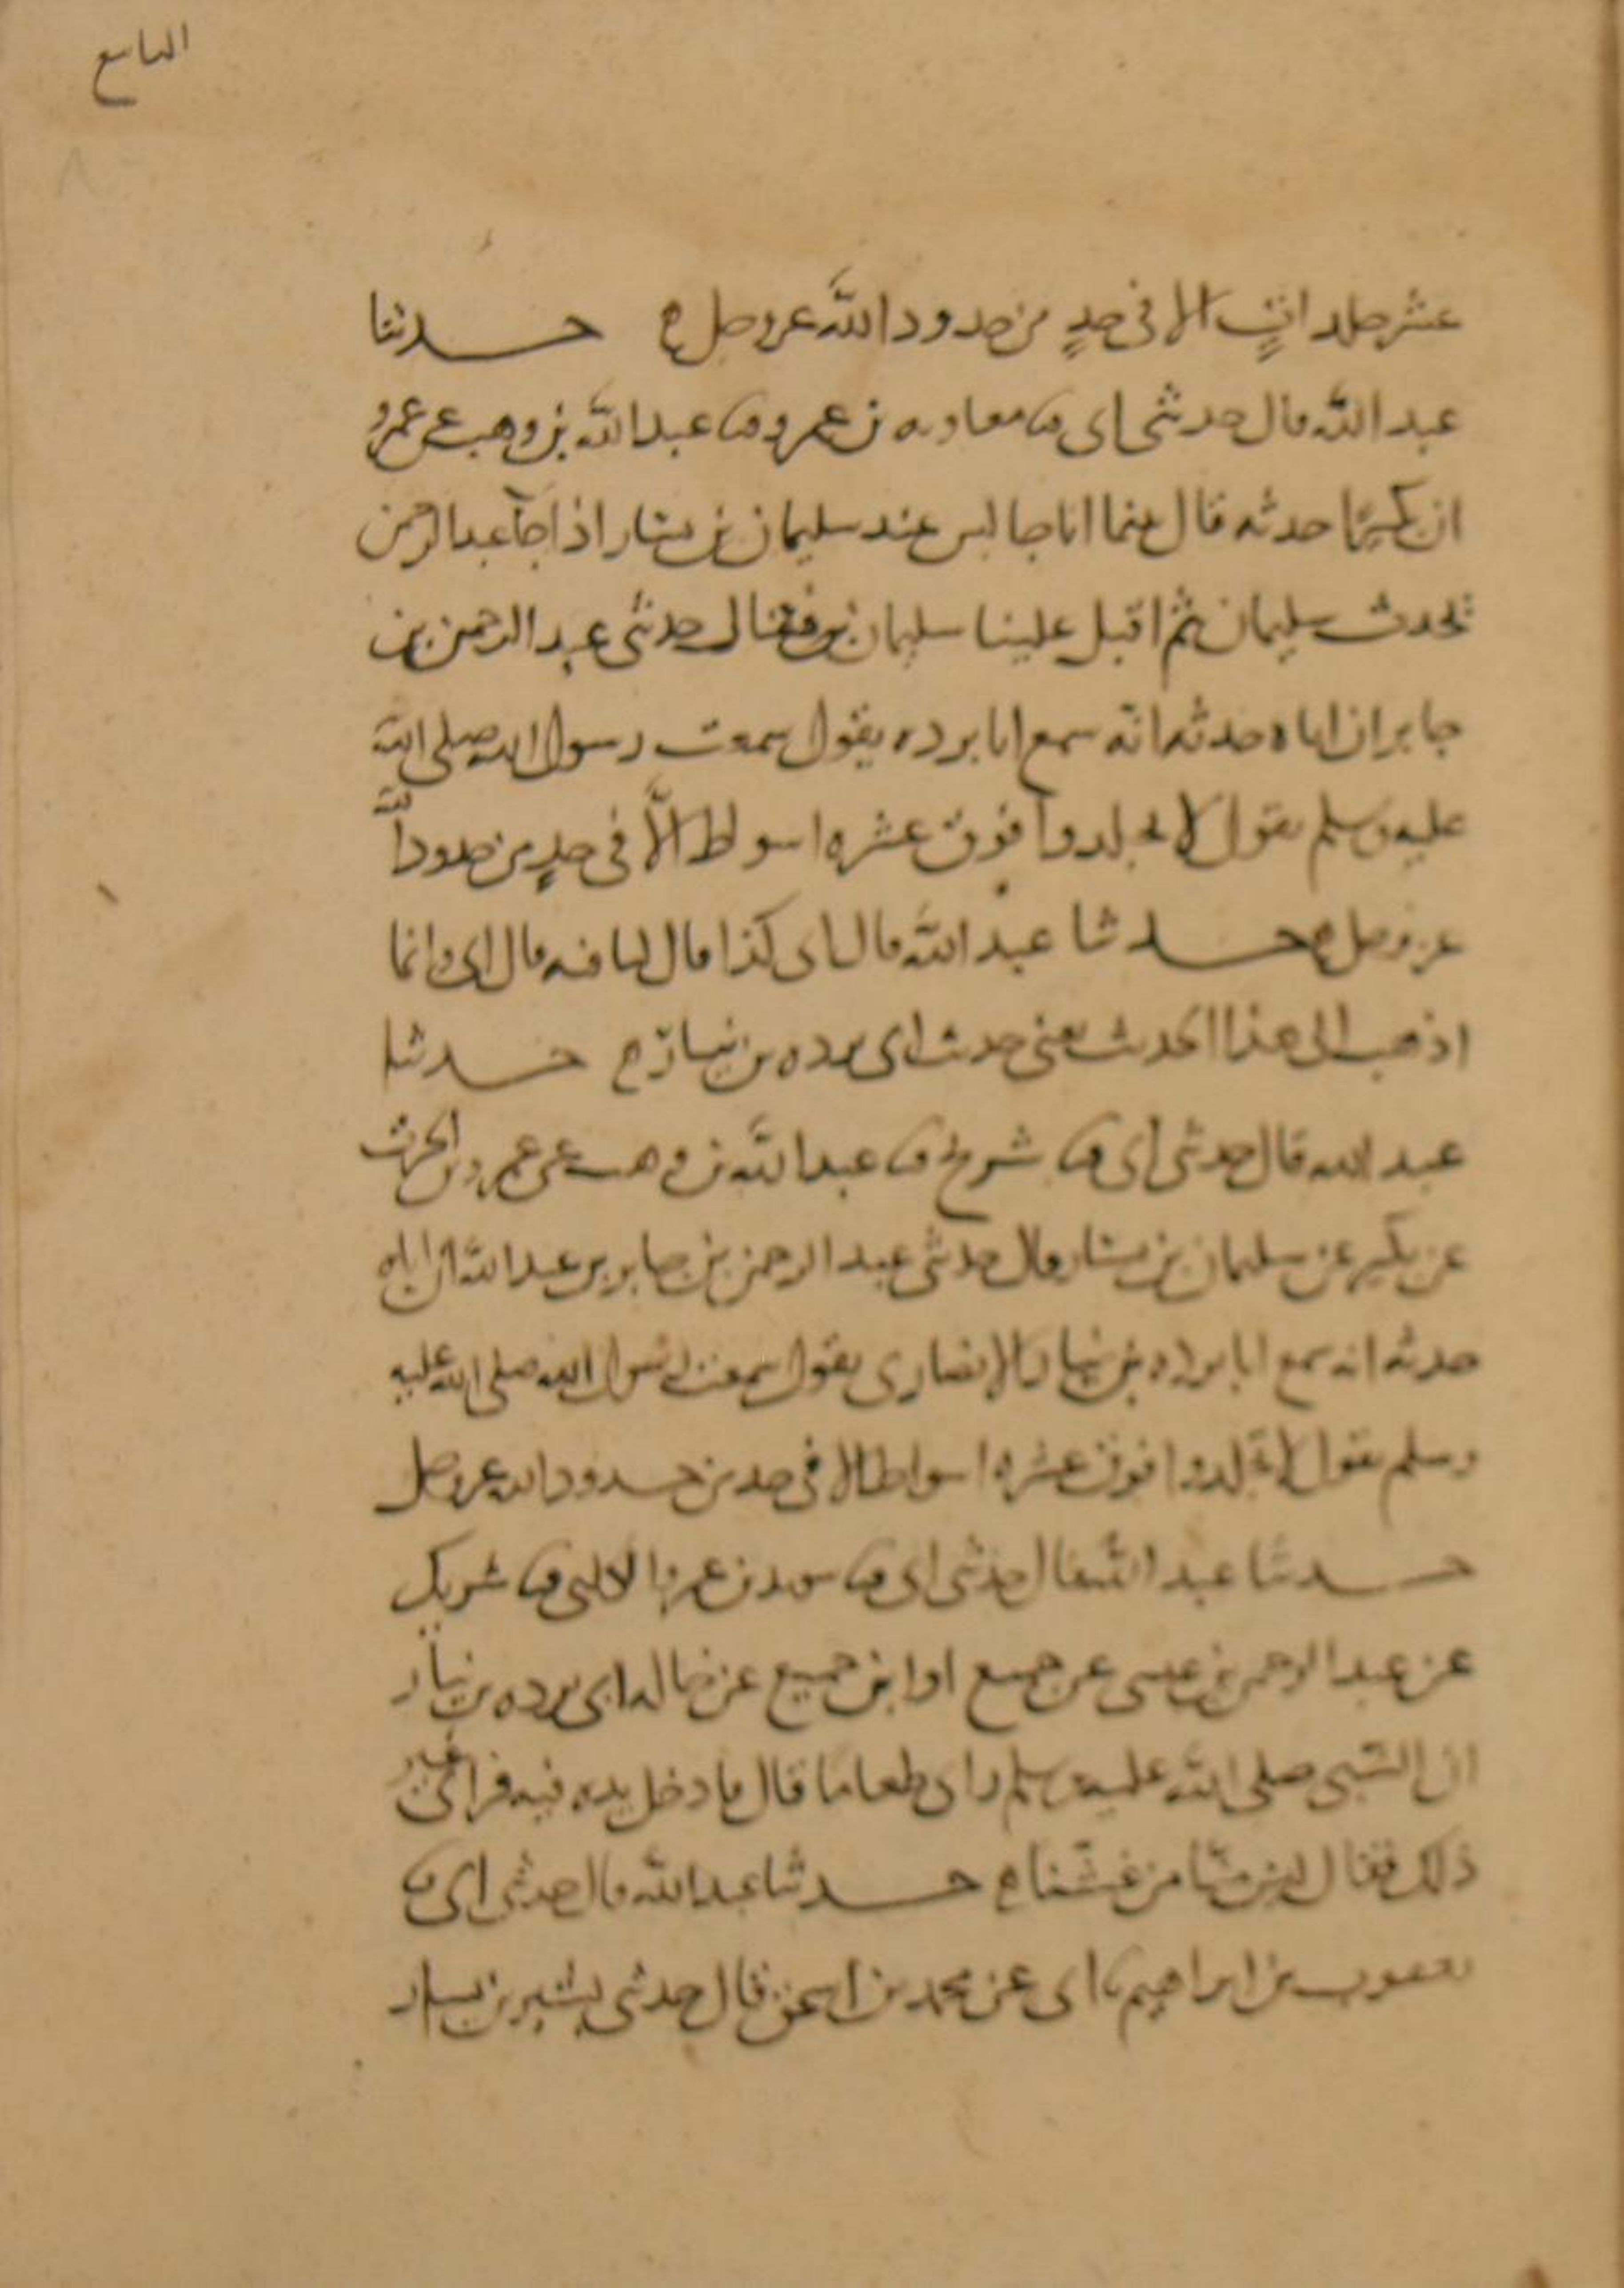 التاسع
عشر جلدات الا فى حدٍ من حدود الله عز وجل ه حدثنا
عبد الله قال حدثنى ابى ثنا معاويه بن عمرو ثنا عبد الله بن وهب عن عمرو
ان بكيرا حدثه قال بينما انا جالس عند سليمان بن يسار اذا جآ عبد الرحمن
تحدث سليمان ثم اقبل علينا سليمان فقال حدثنى عبد الرحمن بن
جابر ان اباه حدثه انه سمع ابا برده يقول سمعت رسول الله صلى الله
عليه وسلم يقول لا تجلدوا فوق عشره اسواط الّا فى حدٍ من حدود الله
عز وجل ه حدثنا عبد الله قال ابى كذا قال لنا فيه قال ابى وانما
اذهب الى هذا الحديث يعنى حديث ابى برده بن نيار ه حدثنا
عبد الله قال حدثنى ابى ثنا شريح ثنا عبد الله بن وهب عن عمرو بن الحرث
عن بكير عن سليمان بن يسار قال حدثنى عبد الرحمن بن جابر بن عبد الله ان اباه
حدثه انه سمع ابا برده بن نيار الانصارى يقول سمعت رسول الله صلى الله عليه
وسلم يقول لا تجلدوا فوق عشره اسواط الا فى حد من حدود الله عز وجل
حدثنا عبد الله قال حدثنى ابى ثنا سويد بن عمرو الكلبى ثنا شريك
عن عبد الرحمن بن عيسى عن جميع او ابن جميع عن خاله ابى برده بن نيار
ان النبى صلى الله عليه وسلم راى طعاما قال فادخل يده فيه فراى غير
ذلك فقال ليس منّا من غشّنا ه حدثنا عبد الله قال حدثنى ابى ثنا
يعقوب بن ابراهيم ثنا ابى عن محمد بن اسحق قال حدثنى بشير بن يسار